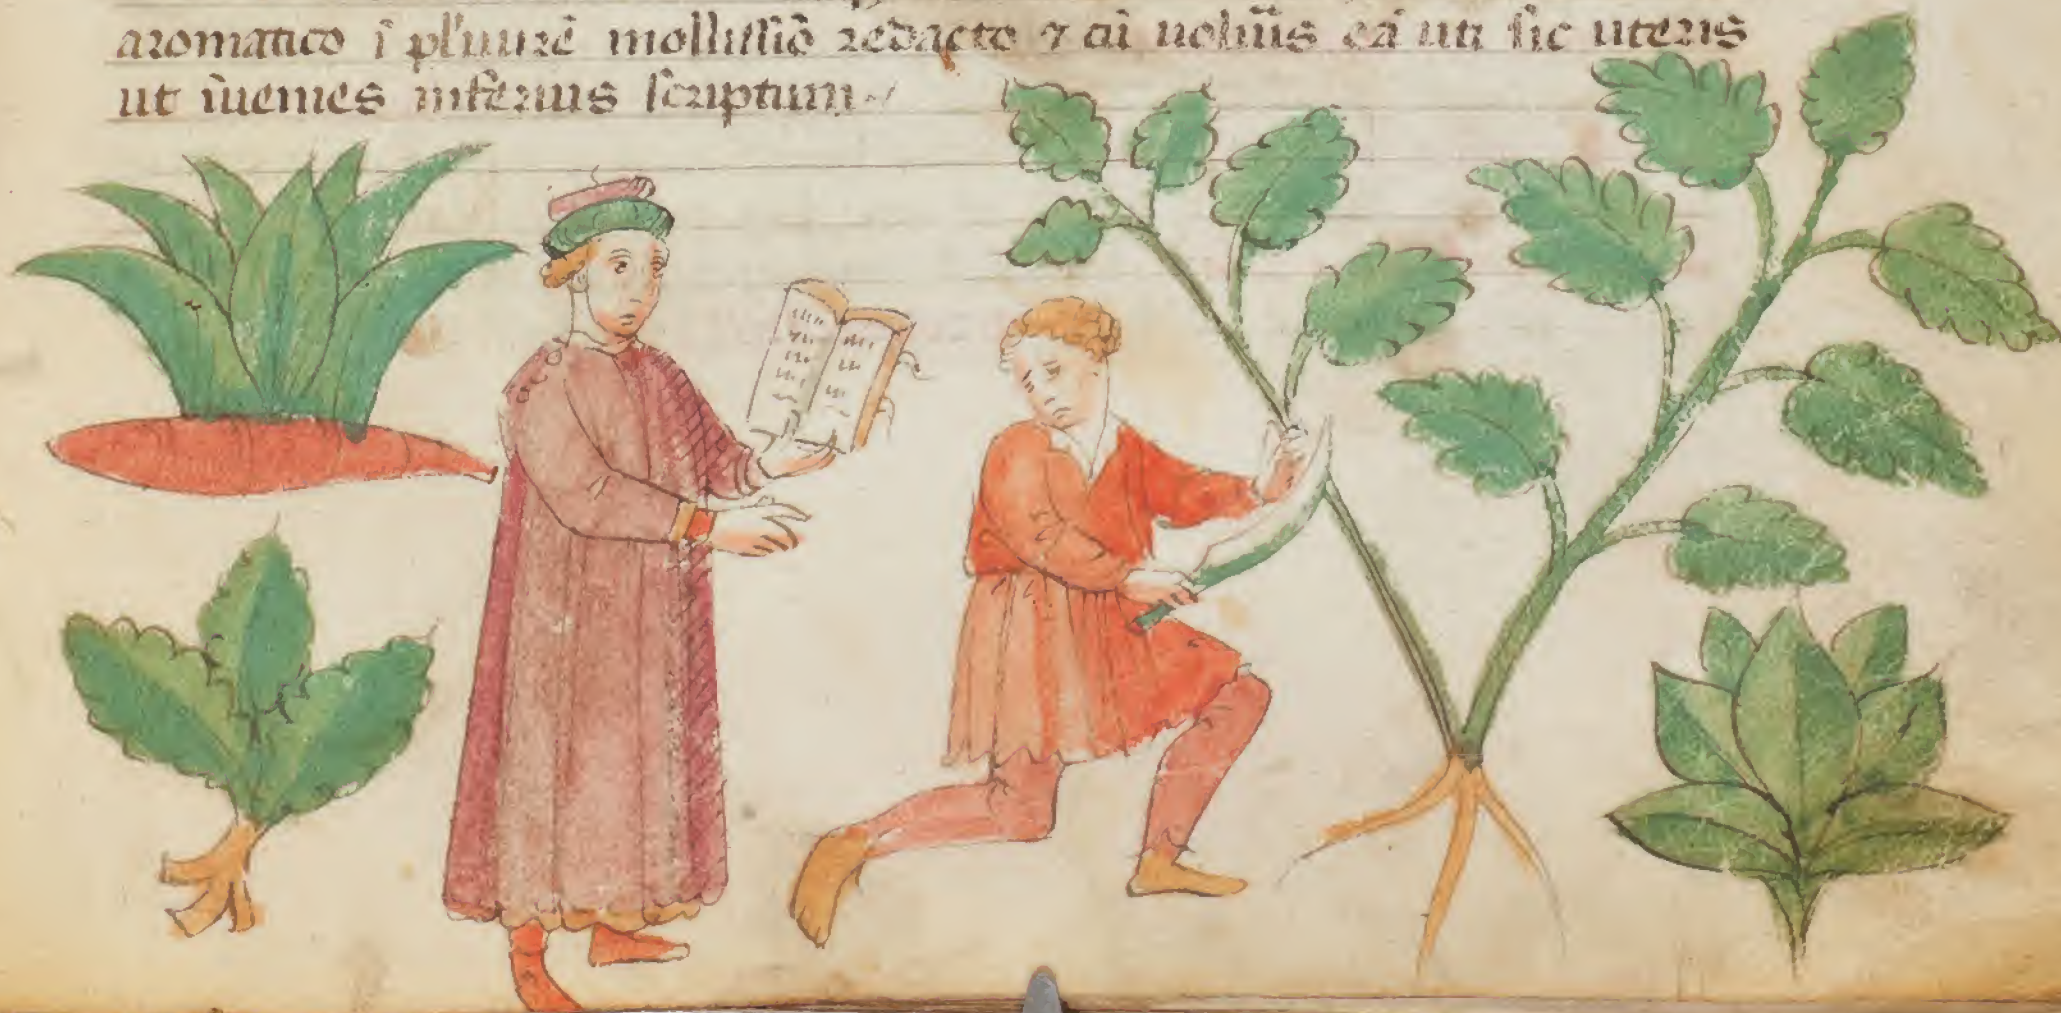 aromatico ī pl'uuzē mollissiō redacto ⁊ cū uolūis eā uti sic uteris
ut īuenies inferius scriptum